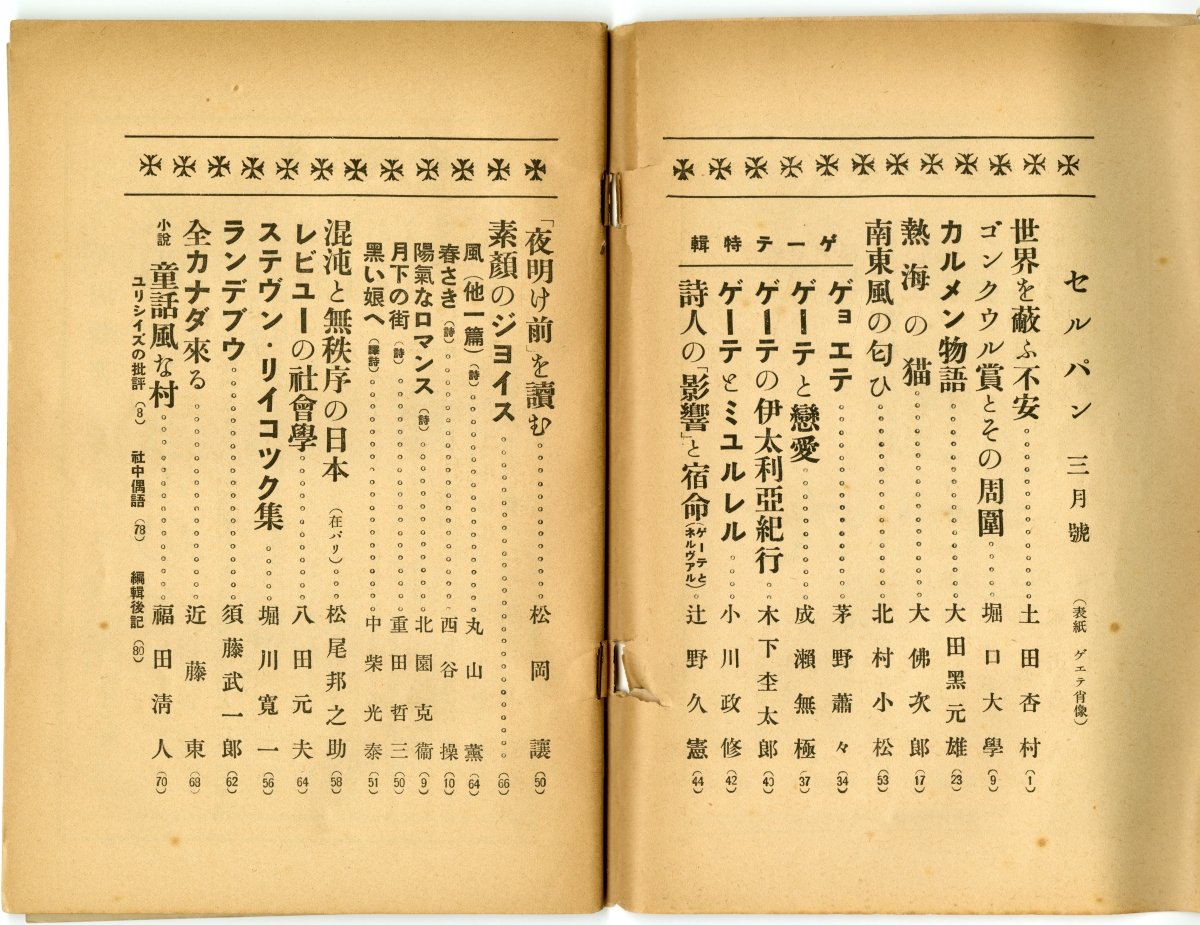 セルパン 三月號 (表紙 ゲェテ肖像)
世界を蔽ふ不安 土田杏村 (1)
ゴンクウル賞とその周圍 堀口大學 (9)
カルメン物語 大田黑元雄 (23)
熱海の猫 大佛次郎 (17)
南東風の匂ひ 北村小松 (53)
ゲーテ特輯
ゲョエテ 茅野蕭々 (34)
ゲーテと戀愛 成瀨無極 (37)
ゲーテの伊太利亞紀行 木下杢太郎 (40)
ゲーテとミュルレル 小川政修 (42)
詩人の「影響」と宿命(ゲーテとネルヴアル) 辻野久憲 (44)
「夜明け前」を讀む 松岡讓 (50)
素顏のジヨイス (66)
風(他一篇)(詩) 丸山薰 (64)
春さき(詩) 西谷操 (10)
陽氣なロマンス(詩) 北園克衞 (9)
月下の街(詩) 重田哲三 (50)
黑い娘へ(譯詩) 中柴光泰 (51)
混沌と無秩序の日本(在パリ) 松尾邦之助 (58)
レビューの社會學 八田元夫 (64)
ステヴン・リイコツク集 堀川寬一 (56)
ランデブウ 須藤武一郎 (62)
全カナダ來る 近藤東 (68)
小說 童話風な村 福田淸人 (70)
ユリシイズの批評 (8) 社中偶語 (78) 編輯後記 (80)